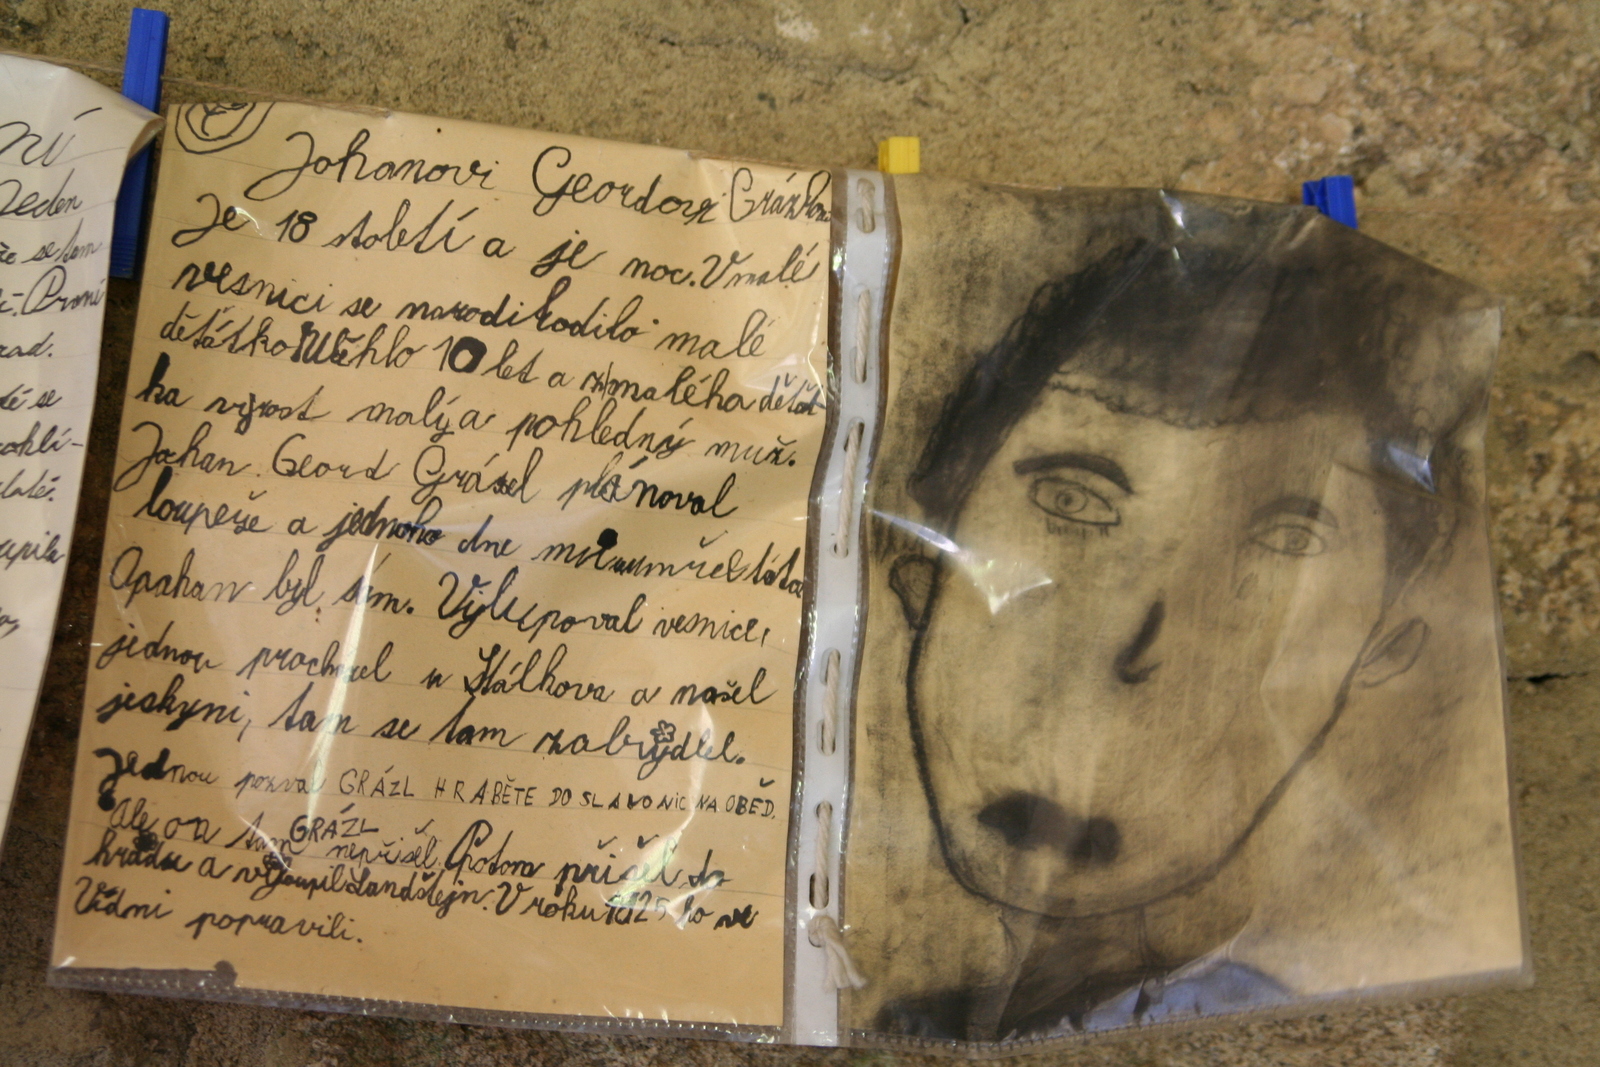 ní
Jeden
se tam
rad.
se
Johanovi Geordovi Grázlovi
Je 18 století a je noc. V malé
vesnici se narodilo malé
děťátko Uběhlo 10 let a z maléha děťát
ka vyrost malý a pohledný muž.
Johan Geord Grázel plánoval
loupeže a jednoho dne mu umřel táta
Apahan byl sám. Vylupoval vesnice,
jednou procházel u Stálkova a našel
jeskyni, tam se tam zabydlel.
Jednou pozval GRÁZL HRABĚTE DO SLAVONIC NA OBĚD.
Ale on tam GRÁZL nepřišel. Potom přišel do
hradu a vyloupil Landštejn. V roku ho ve
Vídni popravili.